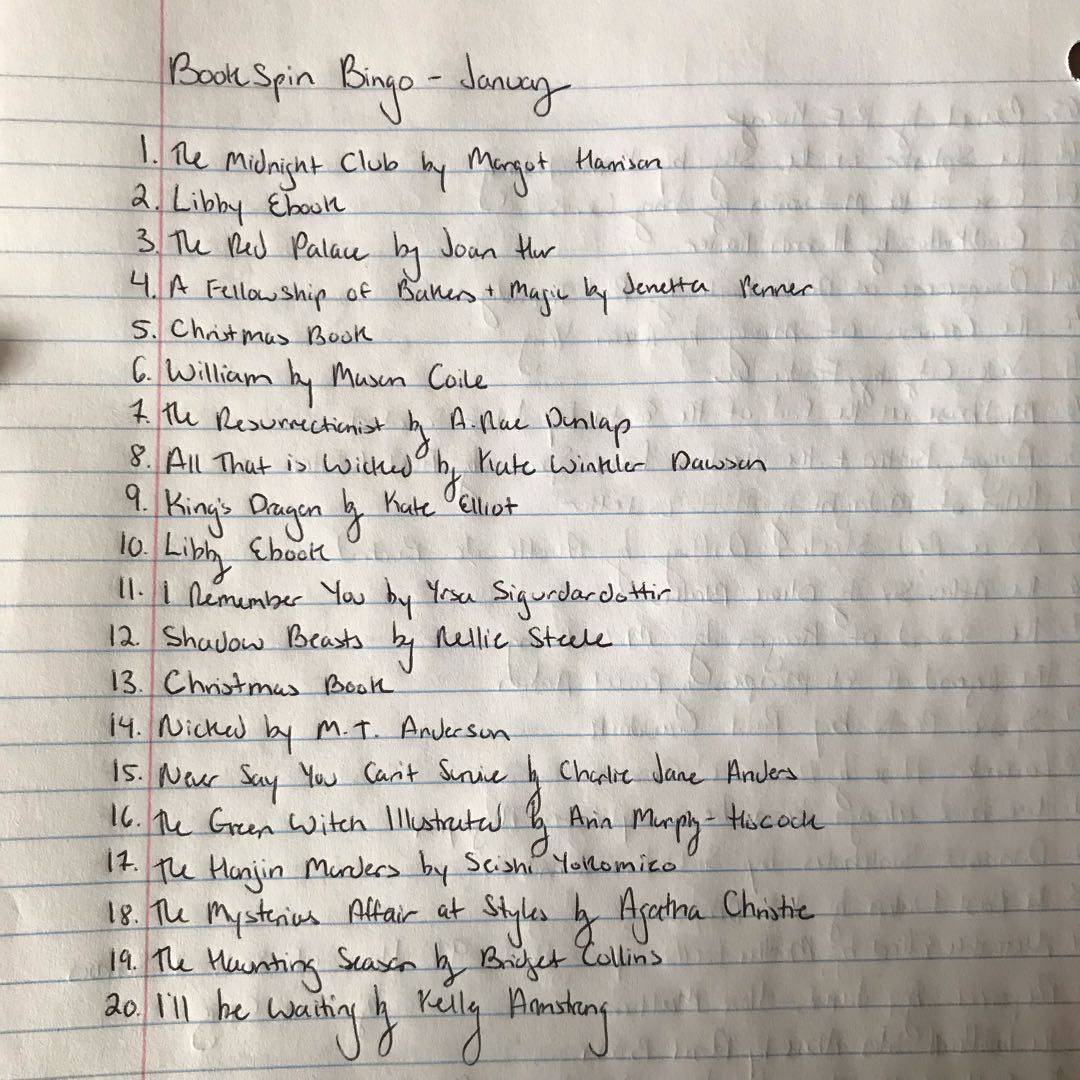 BookSpin Bingo - January
1. The Midnight Club by Margot Harrison
2. Libby Ebook
3. The Red Palace by Joan Hur
4. A Fellowship of Bakers + Magic by Jenetta Penner
5. Christmas Book
6. William by Mason Coile
7. The Resurrectionist by A. Rae Dunlap
8. All That is Wicked by Kate Winkler Dawson
9. King's Dragon by Kate Elliot
10. Libby Ebook
11. I Remember You by Yrsa Sigurdardottir
12. Shadow Beasts by Nellie Steele
13. Christmas Book
14. Nicked by M.T. Anderson
15. Never Say You Can't Survive by Charlie Jane Anders
16. The Green Witch Illustrated by Arin Murphy-Hiscock
17. The Honjin Murders by Seishi Yokomizo
18. The Mysterius Affair at Styles by Agatha Christie
19. The Haunting Season by Bridget Collins
20. I'll be Waiting by Kelly Armstrong